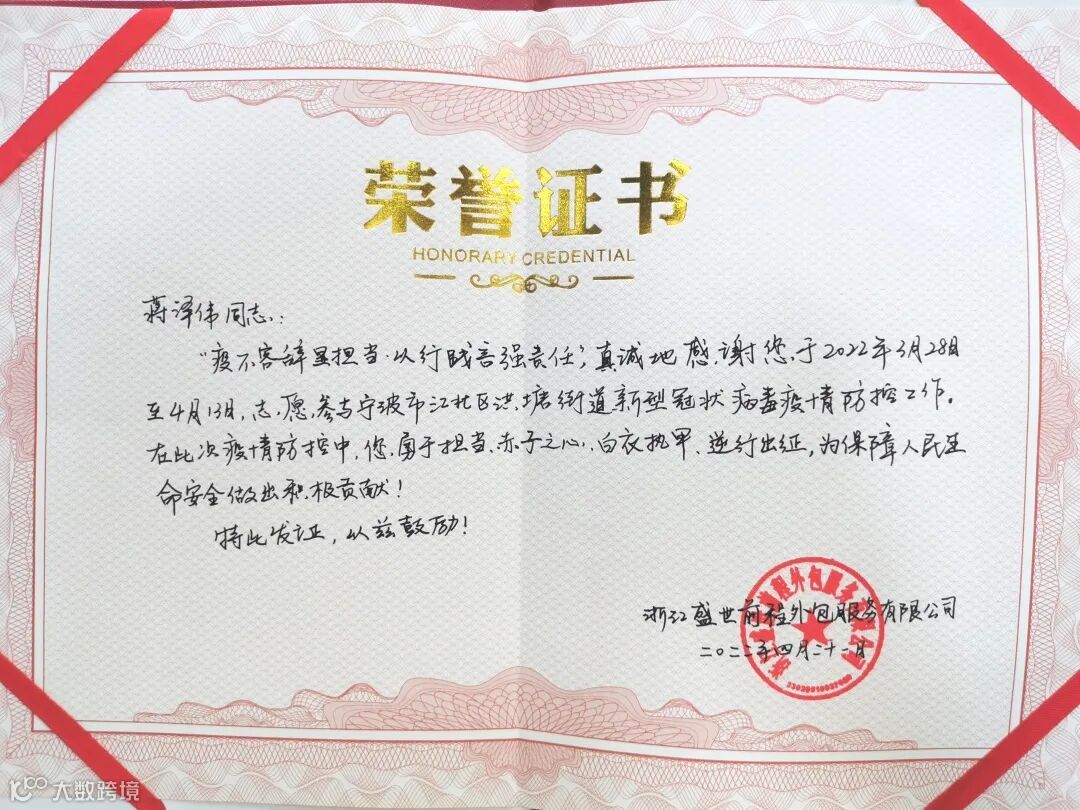 荣誉证书
HONORARY CREDENTIAL
蒋泽伟同志:
“疫不容辞显担当·以行践言强责任”,真诚地感谢您于2022年3月28日
至4月13日,志愿参与宁波市江北区洪塘街道新型冠状病毒疫情防控工作。
在此次疫情防控中,您勇于担当、赤子之心、白衣执甲、逆行出征,为保障人民生
命安全做出积极贡献!
特此发证,以兹鼓励!
浙江盛世前程外包服务有限公司
二〇二二年四月二十一日
大数跨境